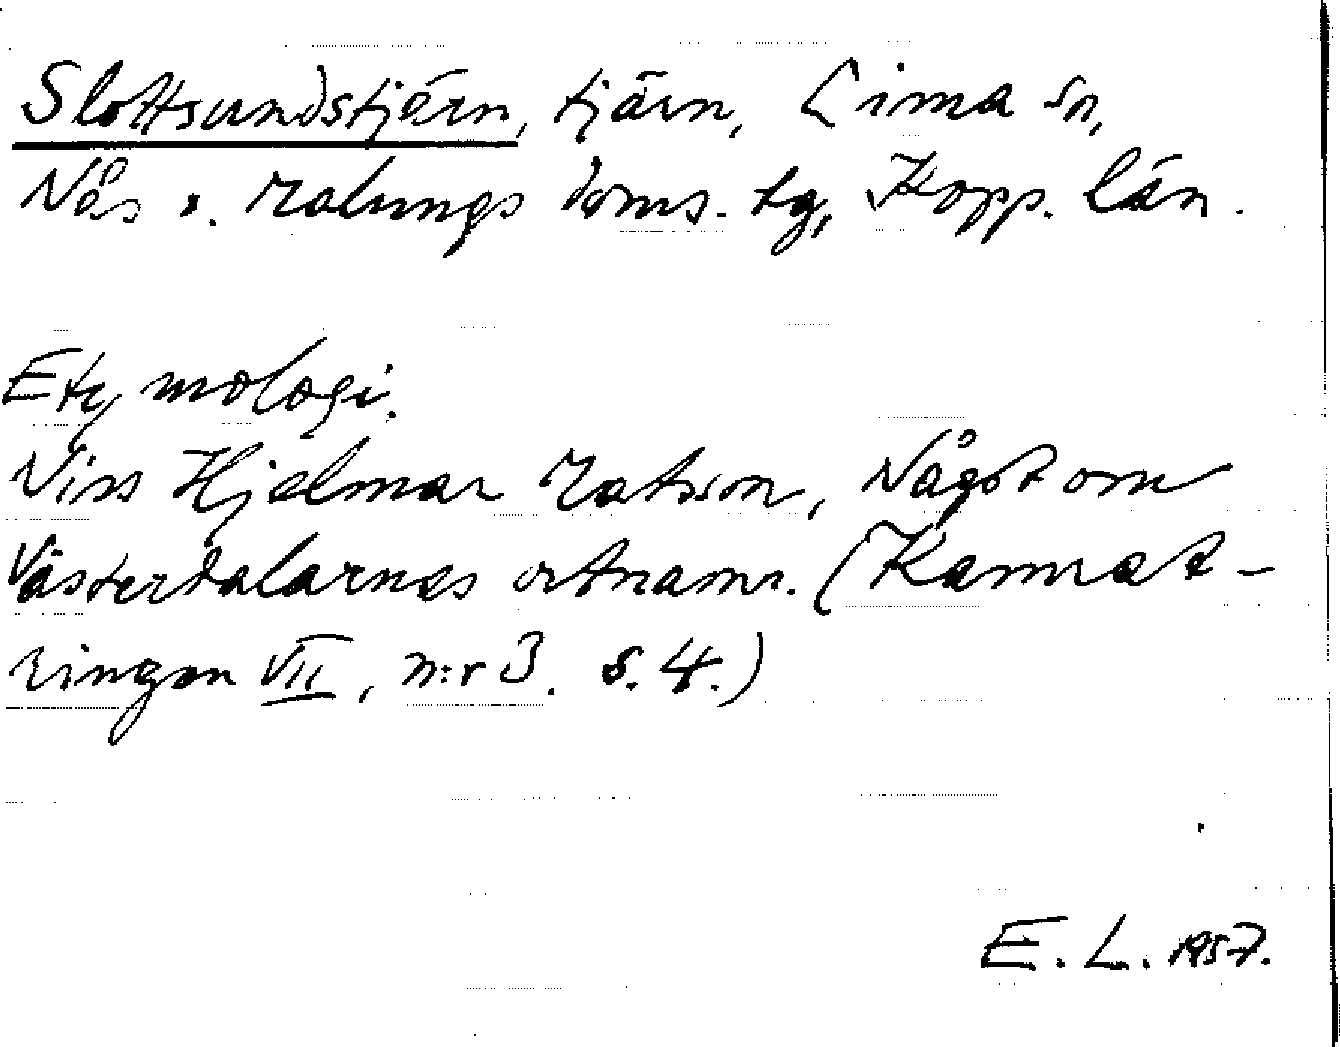 Slottsundstjärn, tjärn, Lima sn,
Nås o. Malungs doms. tg, Kopp. län.
Etymologi.
Niss Hjalmar Matsson, Något om
Västerdalarnas ortnamn. (Kamrat-
ringen VII, n:r 3. s. 4.)
E. L. 1957.